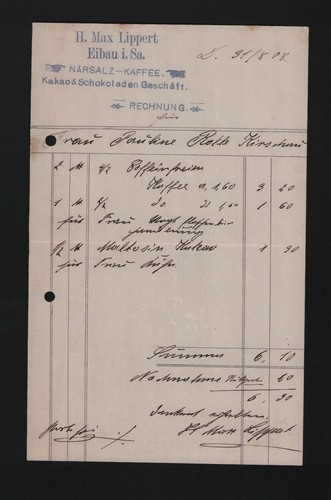 H. Max Lippert
Eibau i. Sa.
NÄRSALZ-KAFFEE.
Kakao & Schokoladen Geschäft.
RECHNUNG.
für
31/8 08.
Frau Pauline Roth Kirschau
2 M ½ Coffeinfreien
Kaffee a 1,60 3 20
1 M ½ do do 1,60 1 60
für Frau
½ M Maltosin Kakao 1 30
für Frau
Summa 6, 10
Nachnahme 20
6 30
dankend erhalten
H. Max Lippert